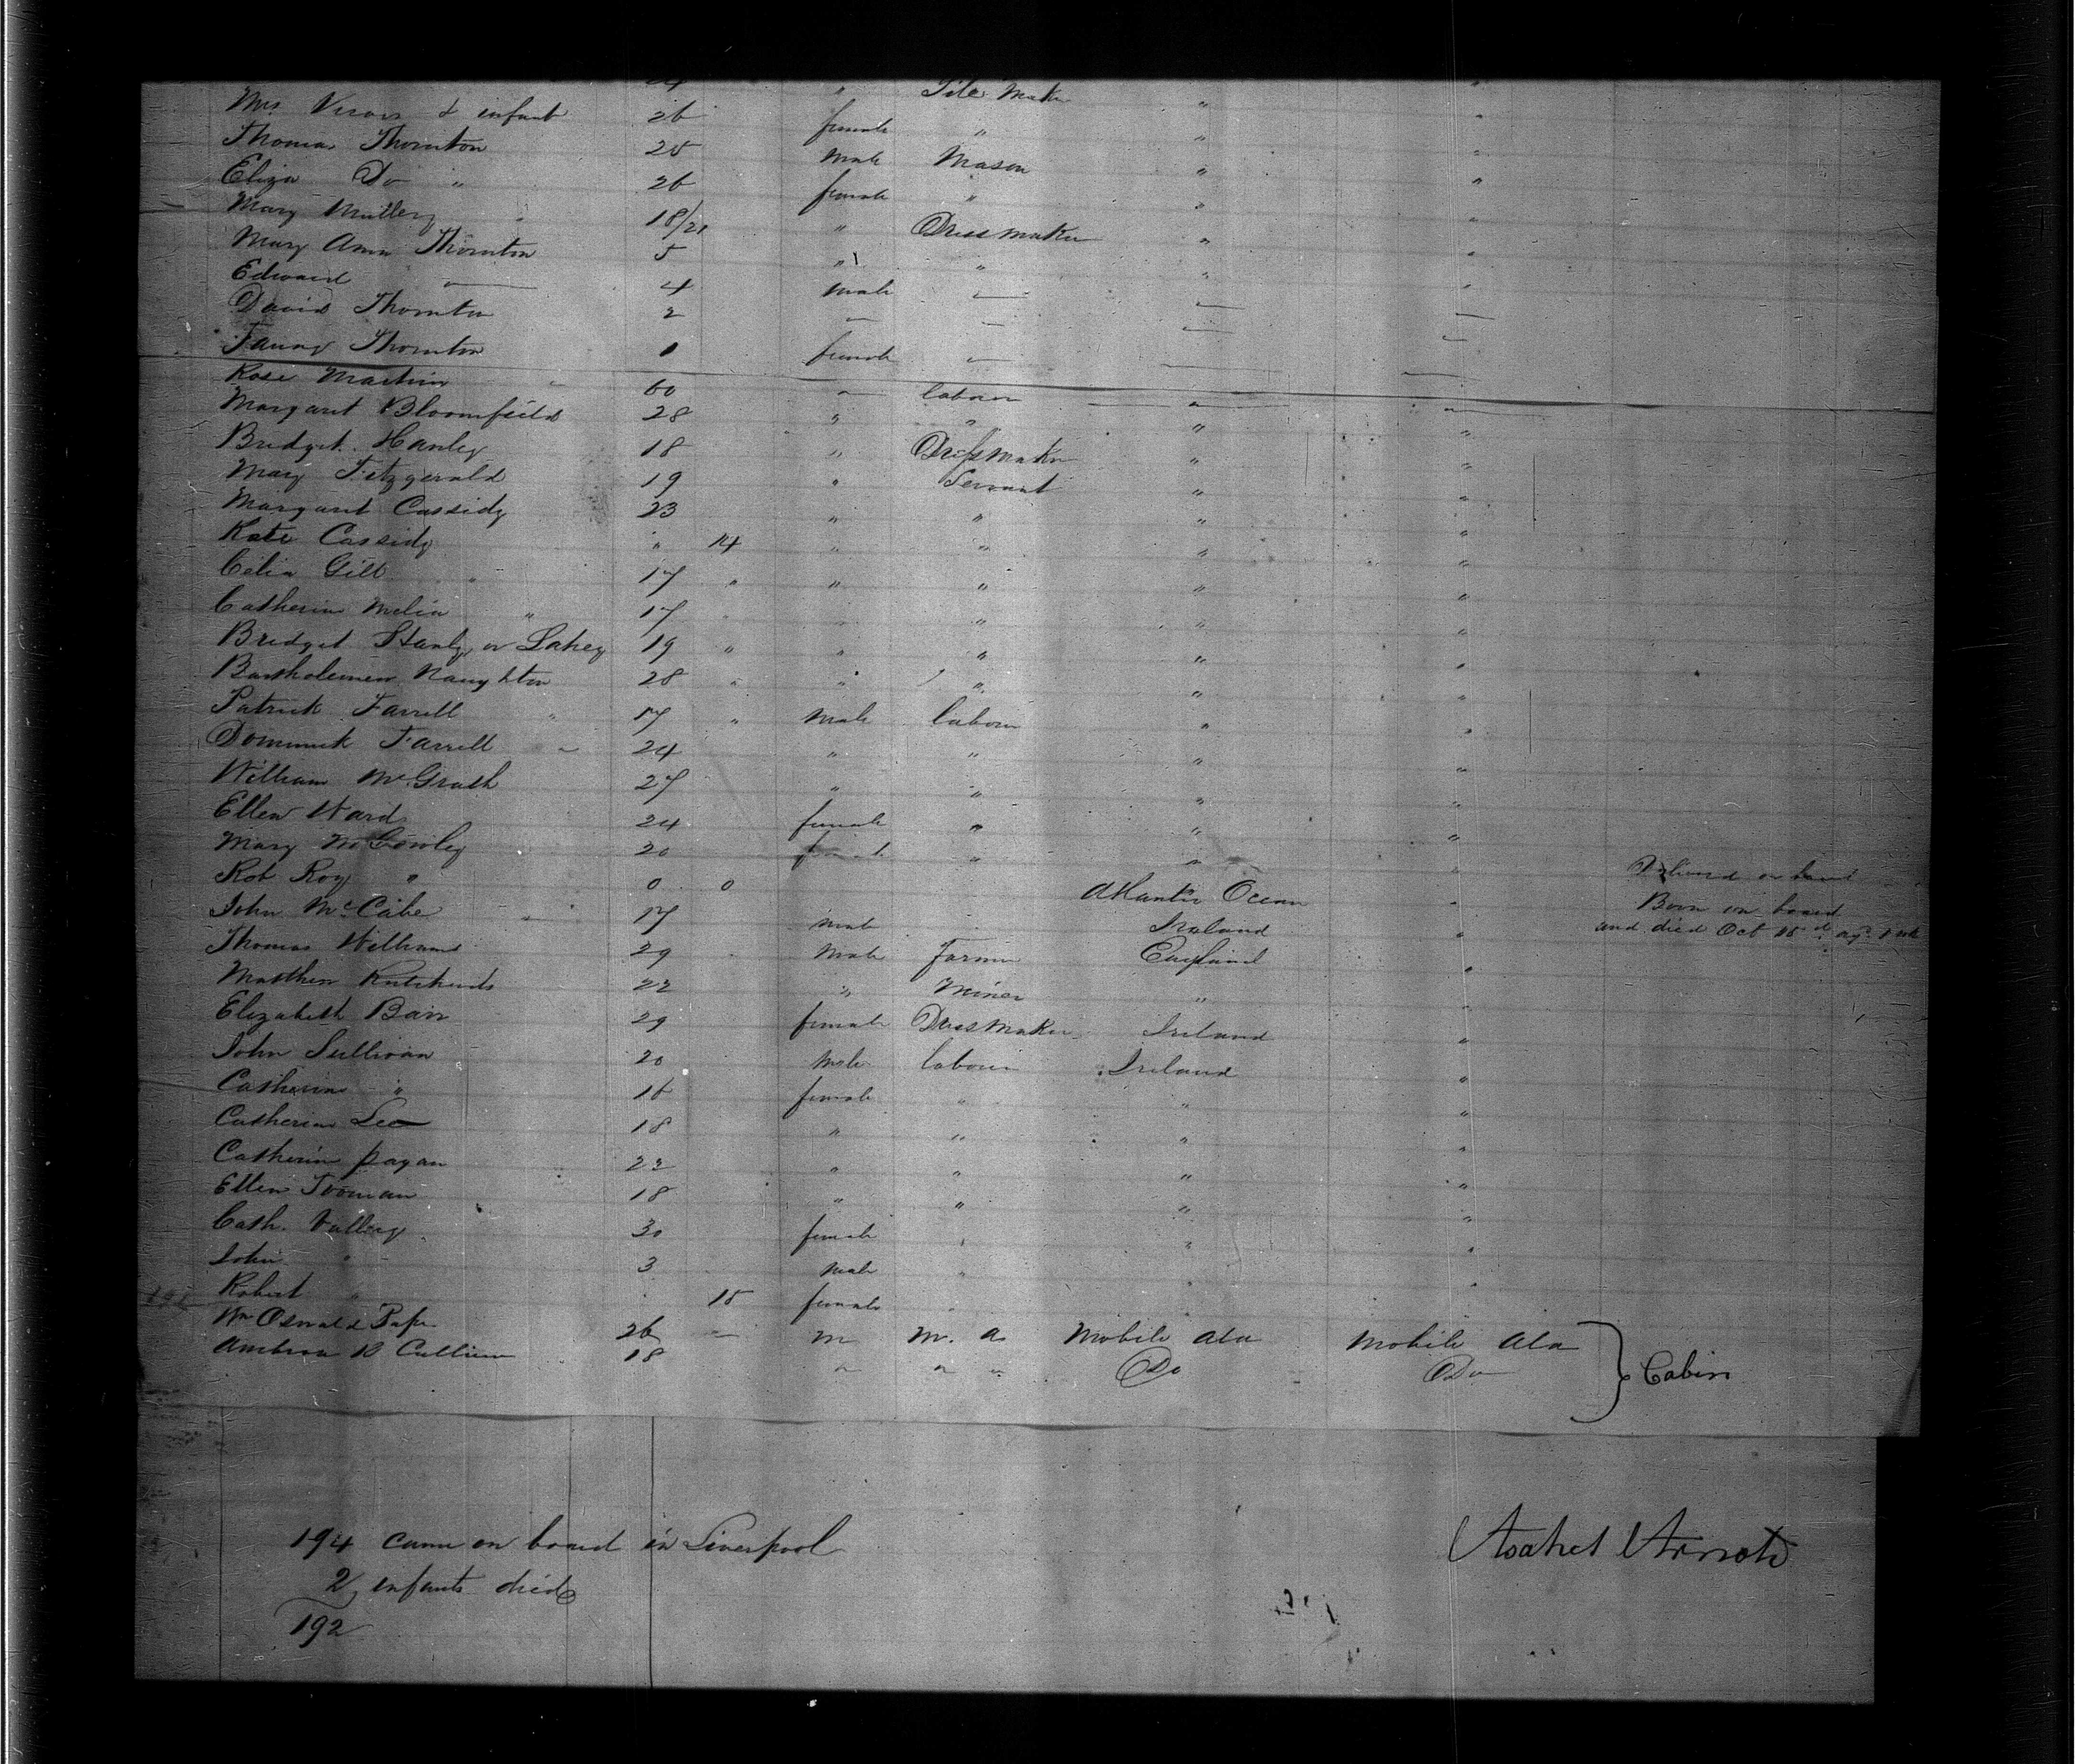 24 " Tile Maker " "
Mrs & infant 26 female " " "
Thomas Thornton 25 male Mason " "
Eliza Do " 26 female " " "
Mary Mullery 18/21 " Dressmaker " "
Mary Ann Thornton 5 " " " "
Edward — 4 male — — —
David Thornton 2 — — — —
Fanny Thornton 1 female — — —
Rose Martin 60 — labour " "
Margaret Bloomfield 28 " " " "
Bridget Hanley 18 " Dressmaker " "
Mary Fitzgerald 19 " Servant " "
Margaret Cassidy 23 " " " "
Kate Cassidy " 14 " " " "
Celia Gill 17 " " " " "
Catherine Melia " 17 " " " " "
Bridget Hanly or Lahey 19 " " " " "
Bartholemew Naughton 28 " " " " "
Patrick Farrell " 17 " Male labour " "
Dominick Farrell 24 " " " "
William McGrath 27 " " " "
Ellen Ward 24 female " " "
Mary 20 female " " "
Rob Roy " 0 0 Atlantic Ocean " Born on board
John McCabe 17 male Ireland " and died Oct
Thomas Williams 29 Male Farmer England "
Matthew 22 " Miner " "
Elizabeth Barr 29 female Dressmaker Ireland "
John Sullivan 20 Male labour Ireland "
Catherine " 16 female " " "
Catherine Lee 18 " " " "
Catherin Fagan 22 " " " "
Ellen 18 " " " "
Cath. Vallery 30 female " " "
John " 3 male " " "
Robert " female " " "
Wm Oswald 26 — m M. a Mobile Ala Mobile Ala
18 " " " Do Do Cabin
194 came on board in Liverpool
2 infants died
192
Asahel